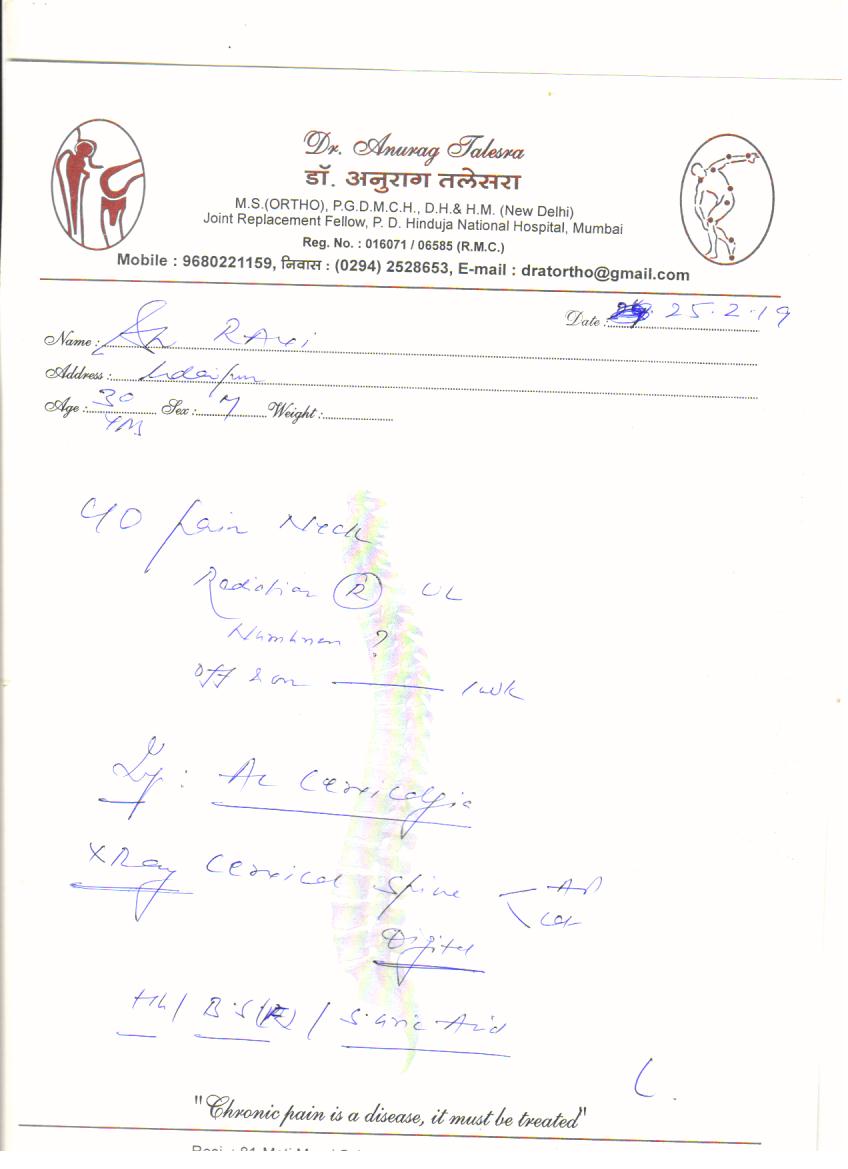 Dr. Anurag Talesra
डॉ. अनुराग तलेसरा
M.S.(ORTHO), P.G.D.M.C.H., D.H.& H.M. (New Delhi)
Joint Replacement Fellow, P. D. Hinduja National Hospital, Mumbai
Reg. No. : 016071 / 06585 (R.M.C.)
Mobile : 9680221159, निवास : (0294) 2528653, E-mail : dratortho@gmail.com
Date : 25.2.19
Name : Ravi
Address : Udaipur
Age : 30 Sex : M Weight :
Yrs
C/O Pain Neck
Radiation R UL
Numbness ?
Off & on 1 wk
Ac Cervicalgia
X Ray Cervical Spine AP
Lat
Digital
Hb / B.S (R) / S. Uric Acid
"Chronic pain is a disease, it must be treated"